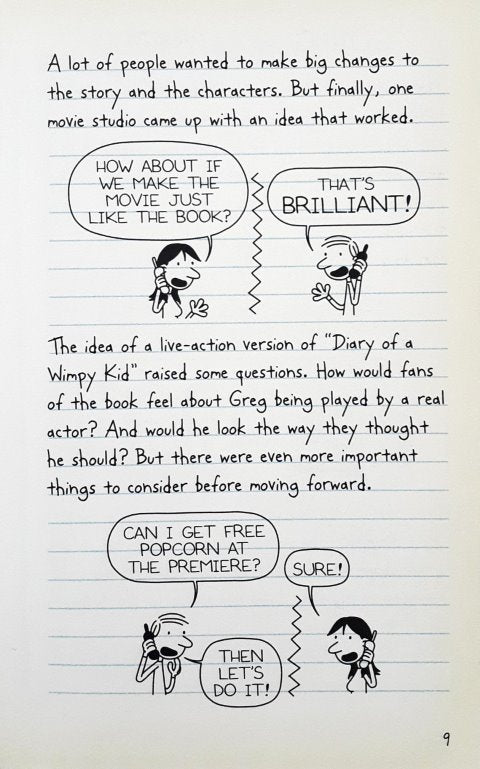 A lot of people wanted to make big changes to
the story and the characters. But finally, one
movie studio came up with an idea that worked.
HOW ABOUT IF
WE MAKE THE
MOVIE JUST
LIKE THE BOOK?
THAT'S
BRILLIANT!
The idea of a live-action version of "Diary of a
Wimpy Kid" raised some questions. How would fans
of the book feel about Greg being played by a real
actor? And would he look the way they thought
he should? But there were even more important
things to consider before moving forward.
CAN I GET FREE
POPCORN AT
THE PREMIERE?
SURE!
THEN
LET'S
DO IT!
9